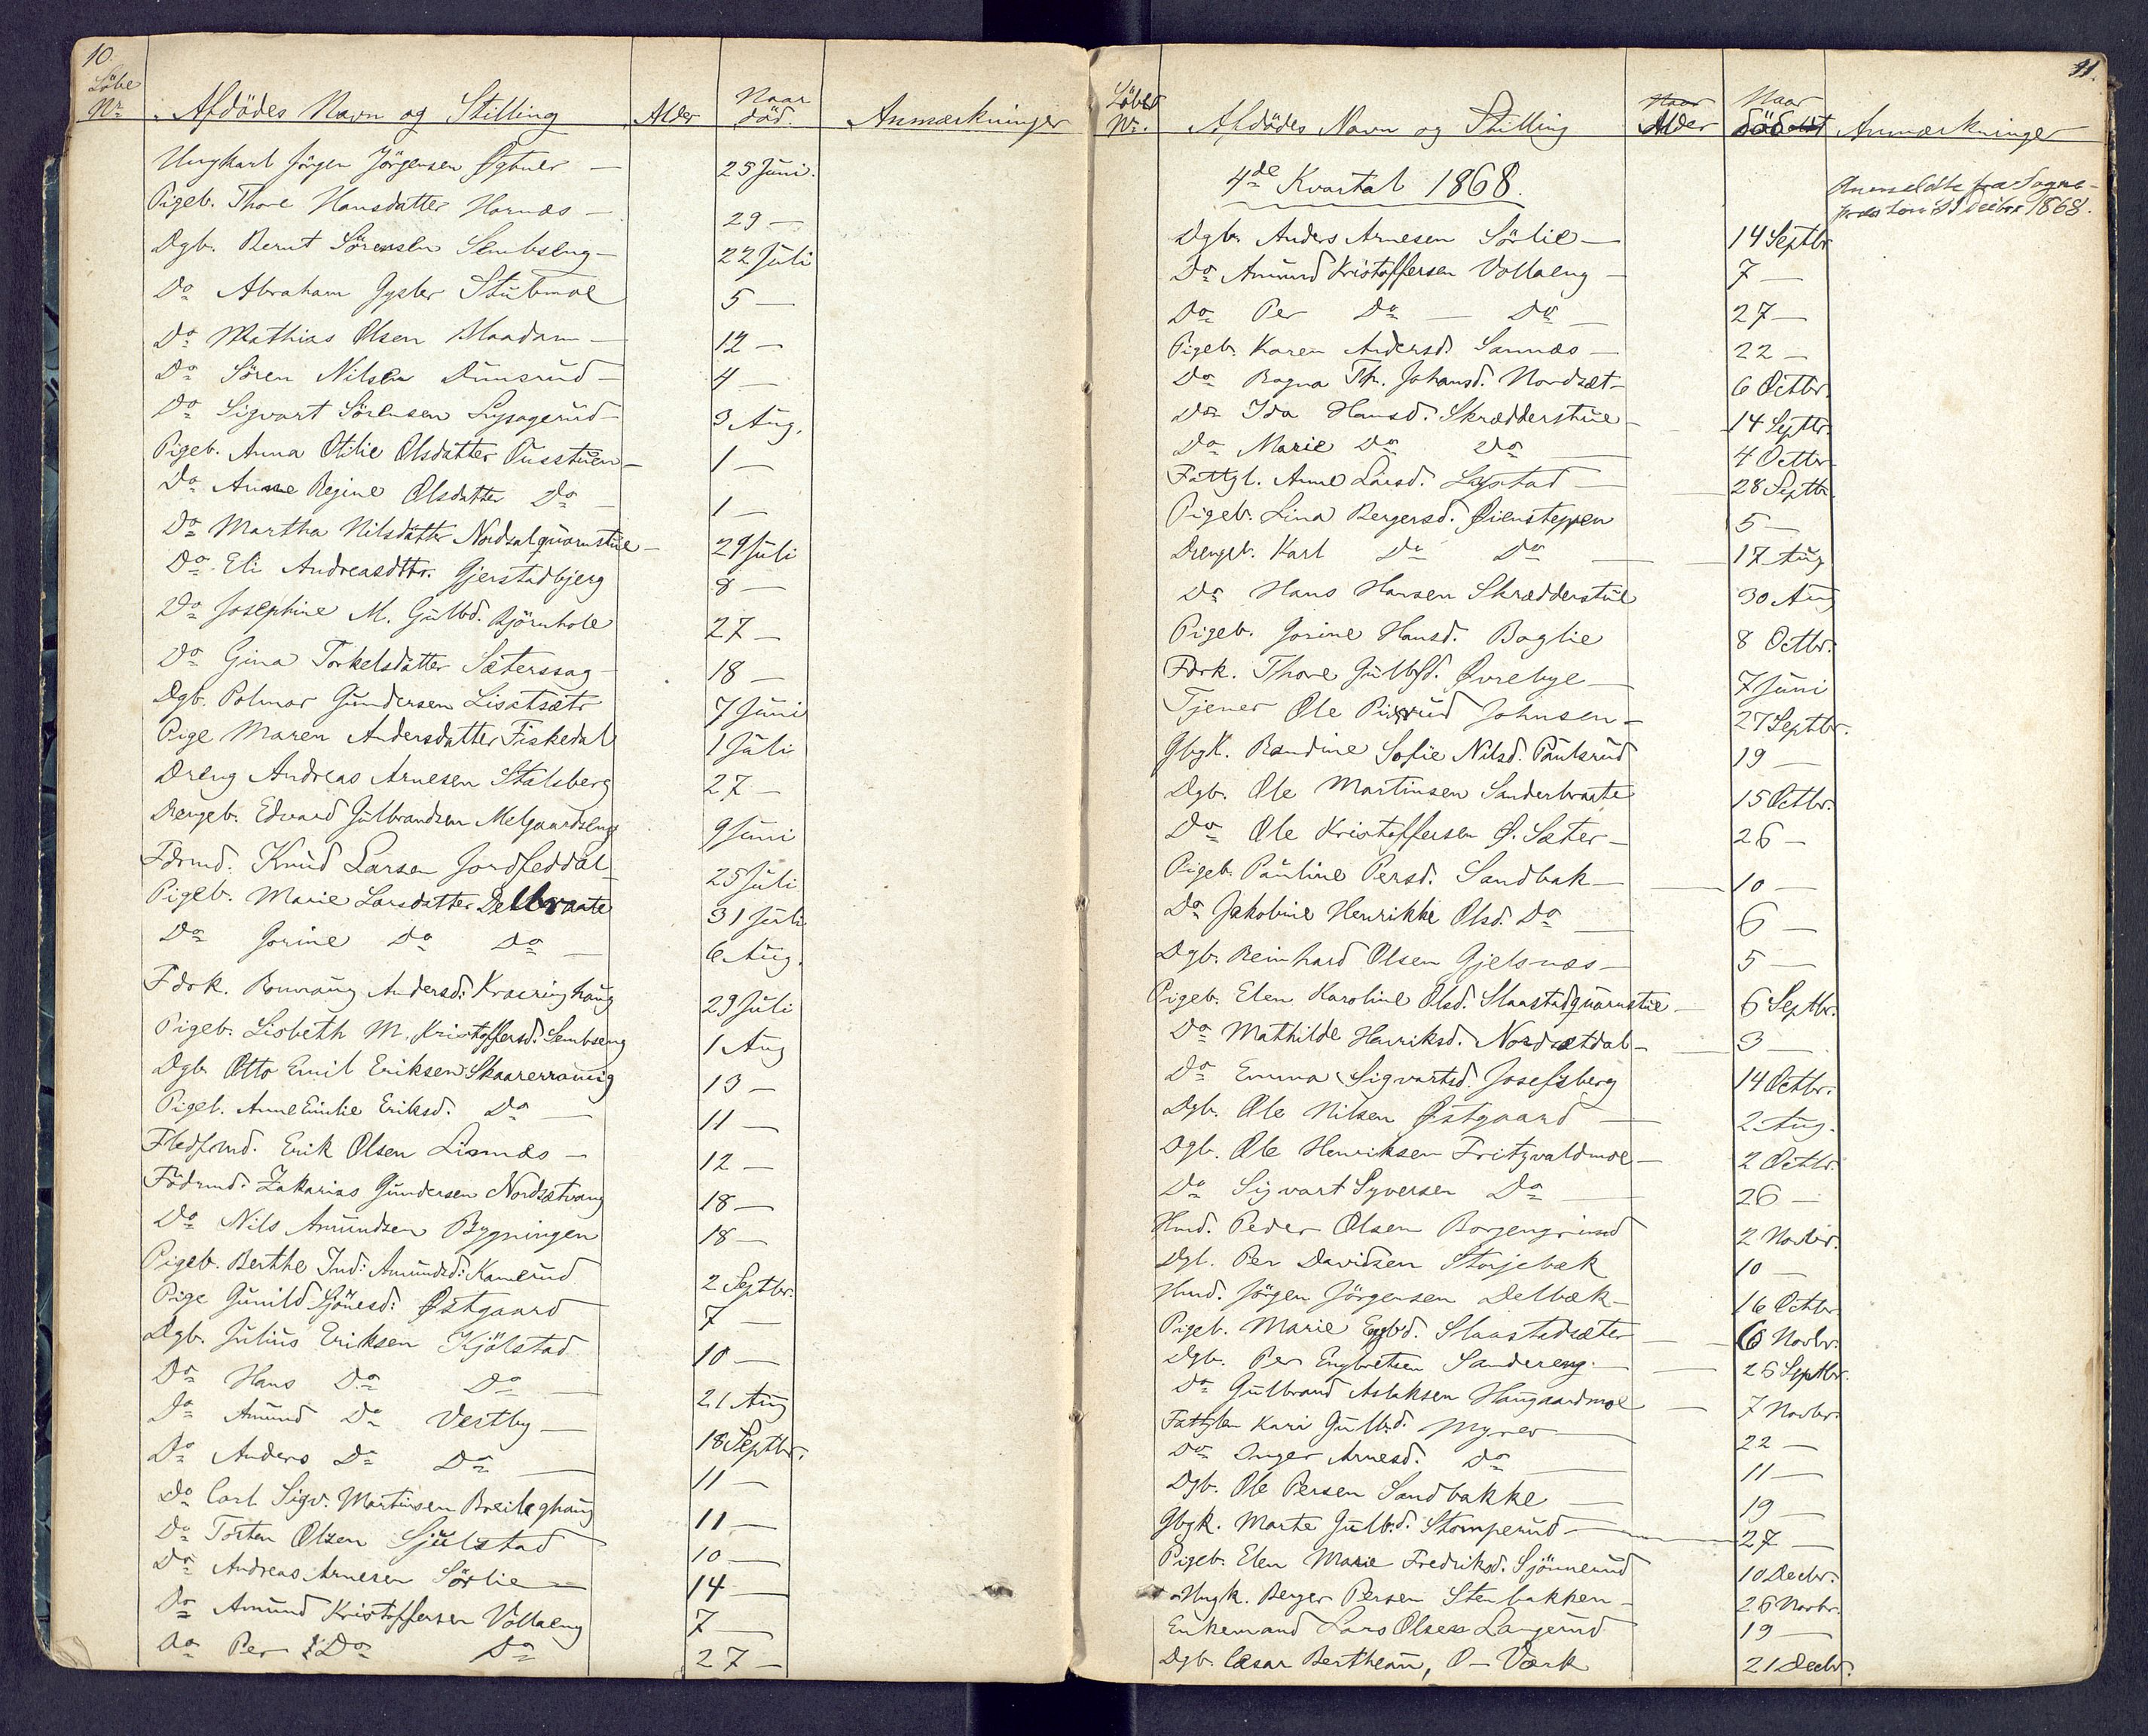 10.
Löbe Nr. Afdödes Navn og Stilling Alder Naar död. Anmærkninger
Ungkarl Jörgen Jörgensen 25 Juni.
Pigeb. Thore Hansdatter Hornæs — 29 —
Dgb. Bernt Sörensen Sembseng — 22 Juli
Do Abraham Gysler Stubmoe 5 —
Do Mathias Olsen Maadam — 12 —
Do Sören Nilsen Dunsrud — 4 —
Do Sigvart Sörensen 3 Aug.
Pigeb. Anna Otilie Olsdatter Ousstuen — 1 —
Do Anne Regine Olsdatter Do — 1 —
Do Martha Nilsdatter Nordsalquarnstue — 29 Juli
Do Eli Andreasdttr. Gjerstadbjerg 8 —
Do Josephine M. Gulbd. Björnhole 27 —
Do Gina Torkelsdatter Sæterssag — 18 —
Dgb. Polmar Gundersen 7 Juni
Pige Maren Andersdatter Fiskedal 1 Juli
Dreng Andreas Arnesen Stalsberg 27 —
Drengeb. Edvard Gulbrandsen Melgaardseng 9 Juni
Fdrmd. Knud Larsen Jordfeddal — 25 Juli
Pigeb. Marie Larsdatter Delbraate 31 Juli
Do Gorine Do Do — 6 Aug.
Fdrk. Andersd: Kraeringhaug 29 Juli
Pigeb. Lisbeth M. Kristoffersd: Sembseng 1 Aug
Dgb. Otto Emil Eriksen Skaarerraunig 13 —
Pigeb. Anne Emilie Eriksd. Do — 11 —
Erik Olsen Lisnæs — 12 —
Födrmd. Zakarias Gundersen Nordsætvang 18 —
Do Nils Amundsen Bygningen 18 —
Pigeb. Berthe Ind: Amundsd: Kamerud 2 Septbr.
Pige Gunild Östgaard 7 —
Dgb. Julius Eriksen Kjölstad 10 —
Do Hans Do Do — 21 Aug
Do Amund Do Vestby — 18 Septbr.
Do Anders Do Do — 11 —
Do Carl Sigv. Martinsen Breileghaug 11 —
Do Torsten Olsen Sjulstad 10 —
Do Andreas Arnesen Sörlie — 14 —
Do Amund Kristoffersen Vollaeng 7 —
Do Per Do Do 27 —
11.
Löbe Nr. Afdödes Navn og Stilling Alder Naar död Anmærkninger
4de Kvartal 1868.
Anmeldte fra Sogne-
presten 31 Decbr 1868.
Dgb. Anders Arnesen Sörlie — 14 Septbr
Do Amund Kristoffersen Vollaeng — 7 —
Do Per Do — Do — 27 —
Pigeb. Karen Andersd. Sannæs — 22 —
Do Ragna Th. Johansd. Nordsæt — 6 Octbr.
Do Ida Hansd. Skrædderstue — 14 Septbr.
Do Marie Do Do — 4 Octbr.
Fattgl. Anne Larsd. Lystad — 28 Septbr.
Pigeb. Lina Bergersd. Öiensteppen 5 —
Drengeb. Karl Do Do — 17 Aug
Do Hans Hansen Skrædderstue 30 Aug
Pigeb. Gorine Hansd. Baglie 8 Octbr.
Fdrk. Thore Gulbrd. Övrebye — 7 Juni
Tjener Ole Johnsen — 27 Septbr.
Gbgk. Randine Sofie Nilsd. Paulsrud 19 —
Dgb. Ole Martinsen Sanderbraate 15 Octbr.
Do Ole Kristoffersen Ö. Sæter — 26 —
Pigeb. Pauline Persd. Sandbak — 10 —
Do Jakobine Henrikke Olsd. Do — 6 —
Dgb. Reinhard Olsen Gjelsnæs — 5 —
Pigeb. Elen Karoline Olsd. Slaastadquarnstue — 6 Septbr.
Do Mathilde Henriksd. Nordsætdal — 3 —
Do Emma Sigvartsd. Josefsberg 14 Octbr.
Dgb. Ole Nilsen Östgaard — 2 Aug.
Dgb. Ole Henriksen Fritzvaldmoe — 2 Octbr.
Do Sigvart Syversen Do — 26 —
Hmd. Peder Olsen Borgengrind 2 Novbr.
Dgb. Per Davidsen Storjebæk 10 —
Hmd. Jörgen Jörgensen Delbæk — 16 Octbr
Pigeb. Marie Slaastadsæter — 6 Novbr.
Dgb. Per Engbretsen Sandereng — 26 Septbr.
Do Gulbrand Aslaksen Haugaardmoe — 7 Novbr.
Fattglem Kari Gulbd. Myrer — 22 —
Do Inger Arnesd. Do — 11 —
Dgb. Ole Persen Sandbakke — 19 —
Gbgk. Marte Gulb.d. Stomperud — 27 —
Pigeb. Elen Marie Fredriksd. Sjönnerud 10 Decbr.
Ungk. Berger Persen Stenbakken — 26 Novbr.
Enkemand Lars Olsen Langerud 19 —
Dgb. Cæsar Bertheau, O-Værk 21 Decbr.